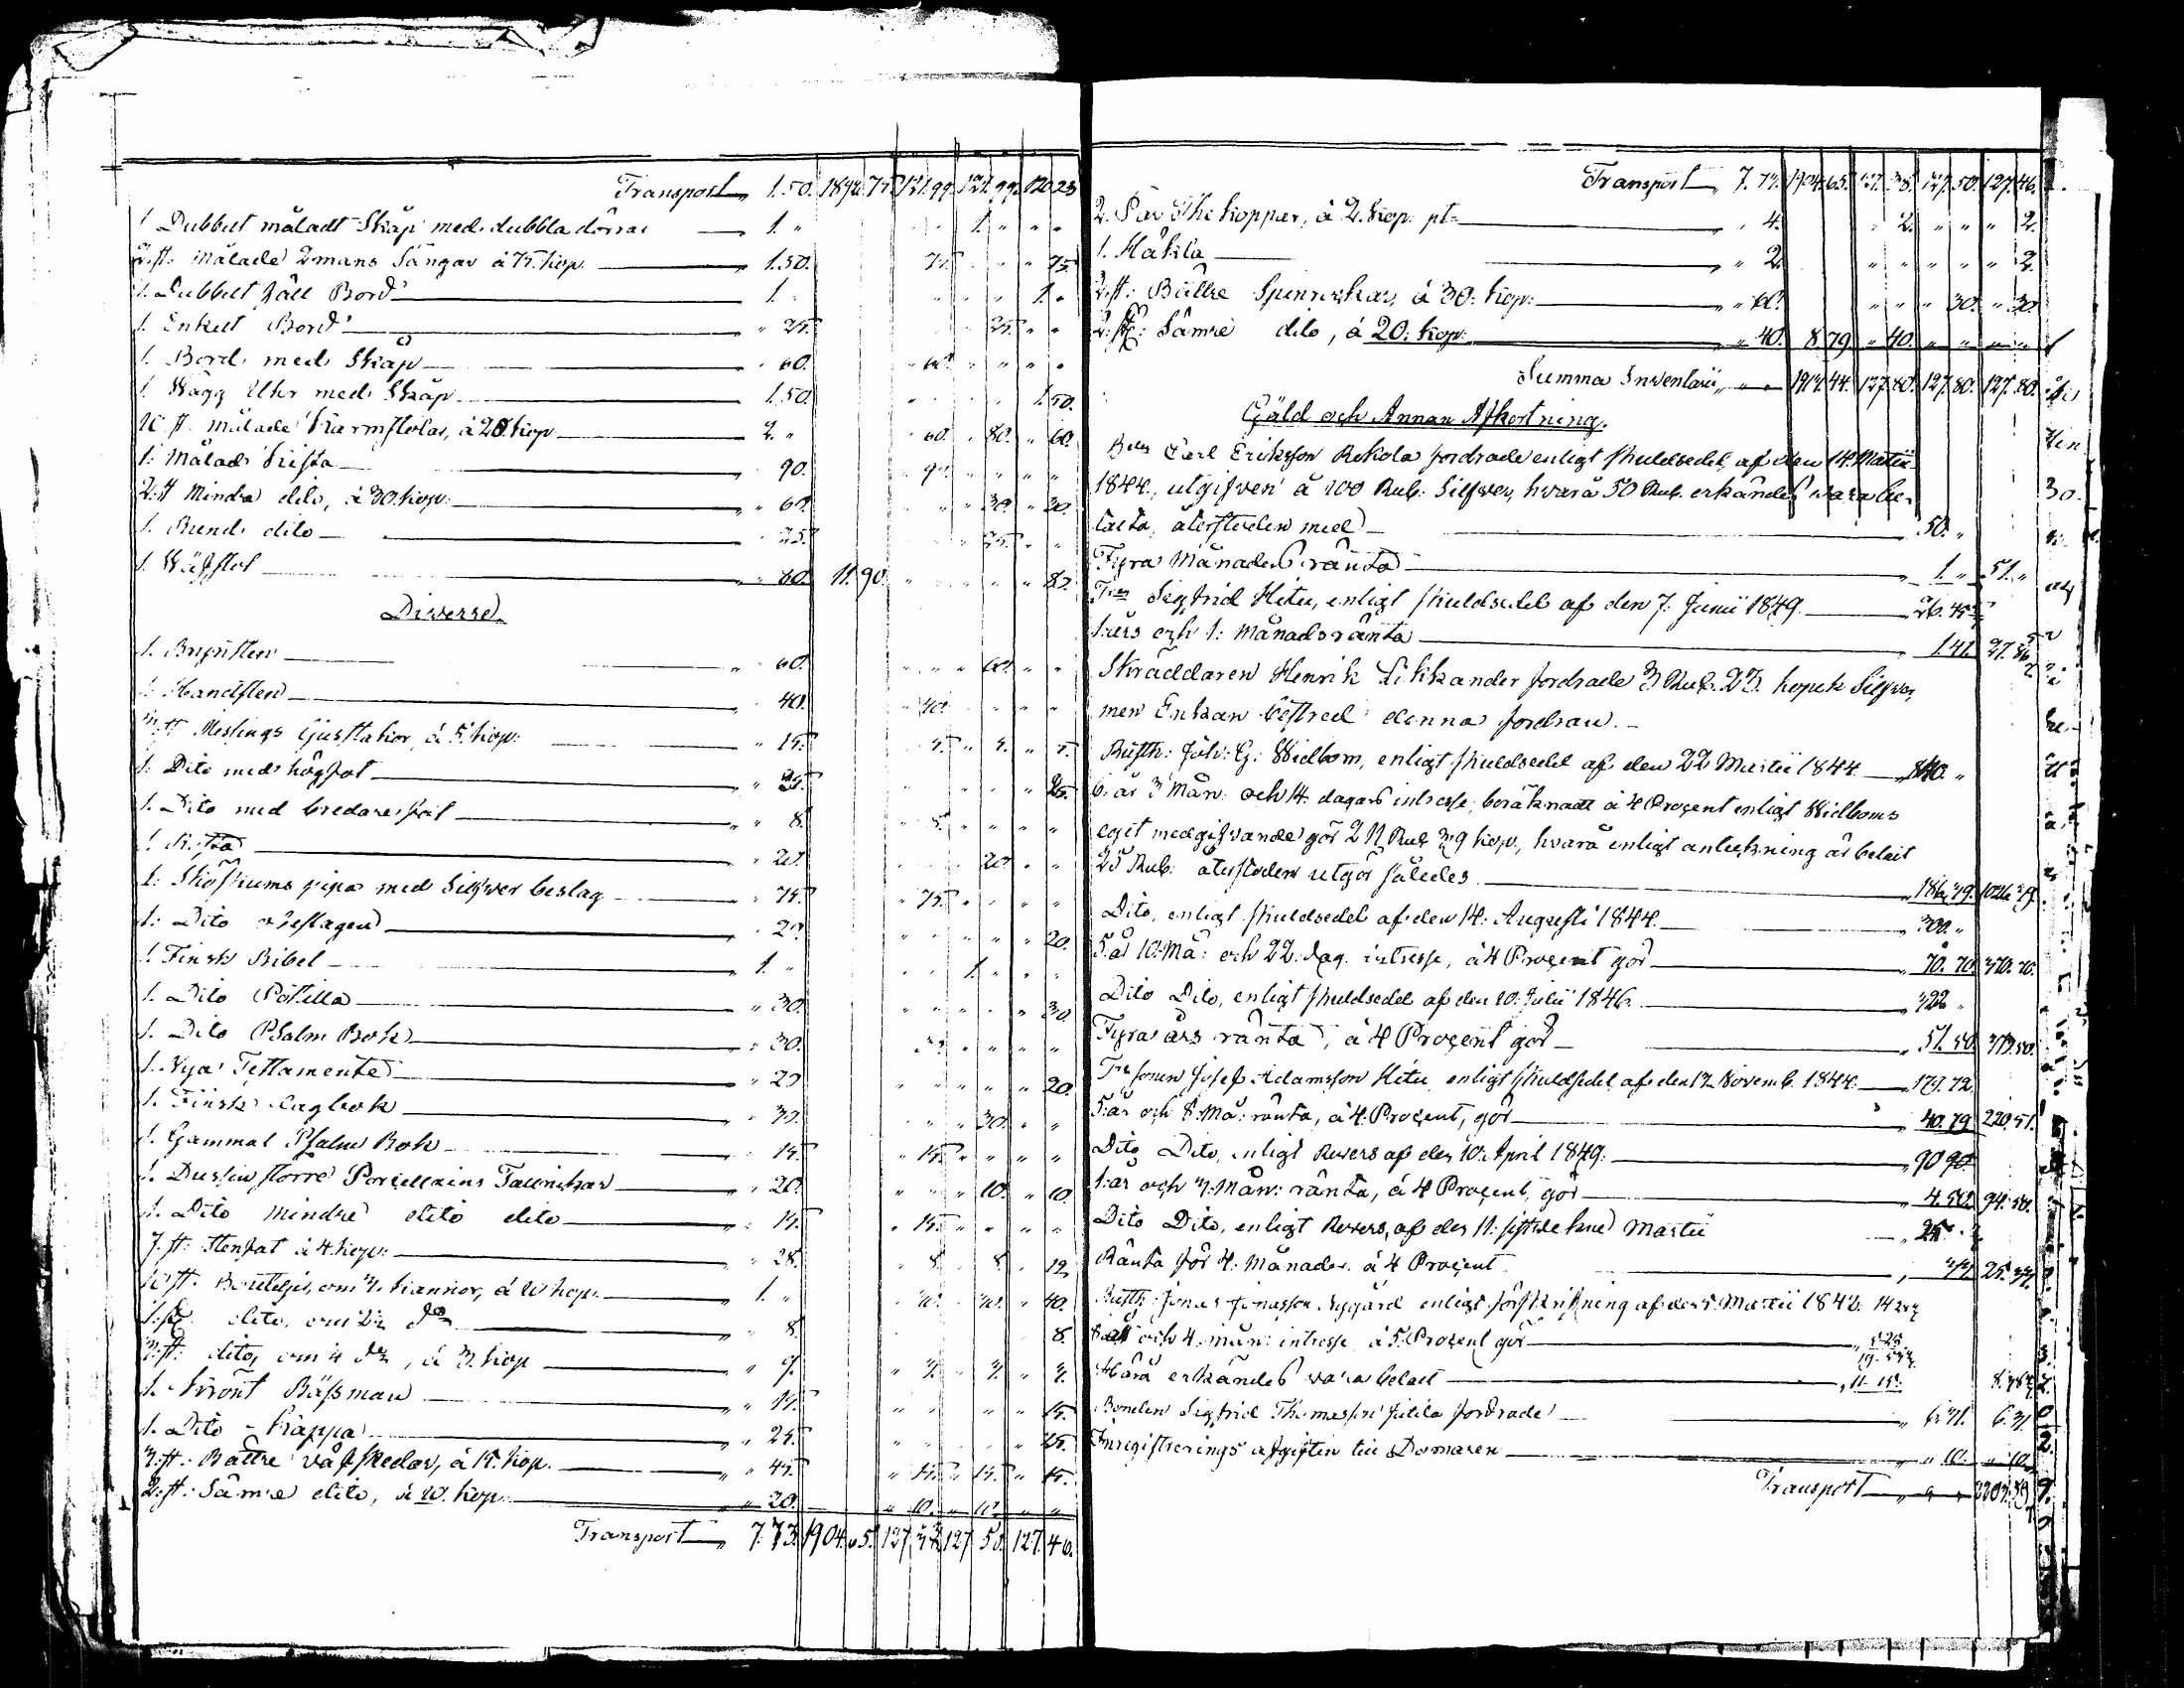 Transport 1.50. 1892. 75. 121.99. 121.99. 120.23
1 Dubbelt måladt Skåp med dubbla dörrar 1. " 1. " " "
2. st. Målade 2mans Sängar à 75. kop. 1.50. 75. " " " 75.
1. Dubbelt fäll Bord 1. " 1. "
1. Enkelt Bord " 25. 25. " "
1. Bord med Skåp " 60. " 60. " " " "
1. Wägg Uhr med Skåp 1.50. 1.50.
10 st. målade Karmstolar, à 20. kop 2. " " 60. " 80. " 60.
1. Målad Kista " 90. " 90. " " " "
2. st Mindre dito, à 30. kop. " 60. " " " 30. " 30.
1. Rund dito " 25. " 25. " "
1. Wäfstol " 80. 11.90. " " " " " 80.
Diverse
1. Brynsten " 60. " " " 60. " "
1. Handsten " 40. " 40. " " " "
3. st Messings ljusstakor, à 5. kop. " 15. " 5. " 5. " 5.
1. Dito med hög fot " 25. " " " " " 25.
1. Dito med bredare fot " 8. " 8. " " " "
1. " 20. 20. " "
1. Sköskums pipa med Silfver beslag " 75. " 75. " " " "
1. Dito obeslagen " 20. " " " " " 20.
1. Finsk Bibel 1. " " " 1. " " "
1. Dito Postilla " 30. " " " " " 30.
1. Dito Psalm Bok " 30. " 30. " " " "
1. Nya Testamente " 20 " " " " " 20.
1. Finsk Lagbok " 30. " " " 30. " "
1. Gammal Psalm Bok " 15. " 15. " " " "
1. Dussin större Porcellains Talrickar " 20. " " " 10. " 10.
1. Dito mindre dito dito " 15. " 15. " " " "
7. st. Stenfat à 4. kop. " 28. " 8. " 8. " 12.
10 st. Bouteljer, om 3. kannor, à 10 kop. 1. " " 30. " 30. " 40.
dito, om 2½ do " 8. 8.
3. st. dito, om 4 do, à 3. kop " 9. " 3. " 3. " 3.
1. Krönt Båssman " 15. " " " " " 15.
1. Dito Kappa " 25. " " " " " 25.
3. st. Bättre våfskedar, à 15. kop. " 45. " 15. " 15. " 15.
2. st. Sämre dito, à 10. kop. " 20. " 10. " 10. " "
Transport 7.73. 1904.65. 127.38. 127.50. 127.46.
Transport 7.73. 1904.65. 127.38. 127.50. 127.46.
2. Par The koppar, à 2. kop. pr " 4. " 2. " " " 2.
1. Häkila " 2. " " " " " 2.
2. st. Bättre Spinrockar, à 30. kop. " 60. " " " 30. " 30.
2. st. Sämre dito, à 20. kop. " 40. 8.79. " 40. " " " "
Summa Inventarii 1913.44. 127.80. 127.80. 127.80.
Gäld och Annan Afkortning.
Carl Eriksson Rekola fordrade enligt skuldsedel af den 14. Martii
1844., utgifven à 100 Rub. Silfver, hvarå 50 Rub. erkändes vara be-
talta, återstoden med 50. "
Fyra Månaders ränta 1. " 51. "
Sigfrid Hitu, enligt skuldsedel af den 7. Junii 1849. 26.45
1. års och 1. Månads ränta 1.41. 27.86
Skräddaren Henrik Likkander fordrade 3 Rub. 23. kopek Silfver,
men Enkan bestred denna fordran.
Rusth. Joh. G. Widbom, enligt skuldsedel af den 22 Martii 1844. 840. "
6. år 3 Mån. och 14. dagars intresse, beräknadt à 4 Procent enligt Widboms
eget medgifvande gör 211 Rub 39 kop., hvarå enligt anteckning är betalt
25 Rub. återstoden utgör således 186.19. 1026.19.
Dito, enligt skuldsedel af den 14. Augusti 1844. 300. "
5. år 10. Må. och 22. dag. intresse, à 4 Procent gör 70.70. 370.70.
Dito Dito, enligt skuldsedel af den 10. Julii 1846. 322 "
Fyra års ränta, à 4 Procent gör 51.50. 373.50.
Josef Adamsson Hitu enligt skuldsedel af den 12. Novemb. 1844. 179.72.
5. år och 8. Må. ränta, à 4. Procent, gör 40.79. 220.51.
Dito Dito, enligt Revers af den 10. April 1849. 90.90
1. år och 3. Mån. ränta, à 4 Procent, gör 4.50. 94.50.
Dito Dito, enligt Revers, af den 11. sistledne Martii 25. "
Ränta för 4. Månader. à 4 Procent 25.33
Rusth. Jonas Jonasson Nygård enligt förskrifning af den 5. Martii 1842.
och 4. mån. intresse à 5. Procent gör
Härå erkändes vara betalt 11.15.
Bonden Sigfrid Thomasson Julila fordrade 6.31. 6.31
Inregistrerings afgiften till Domaren " 10. " 10.
Transport